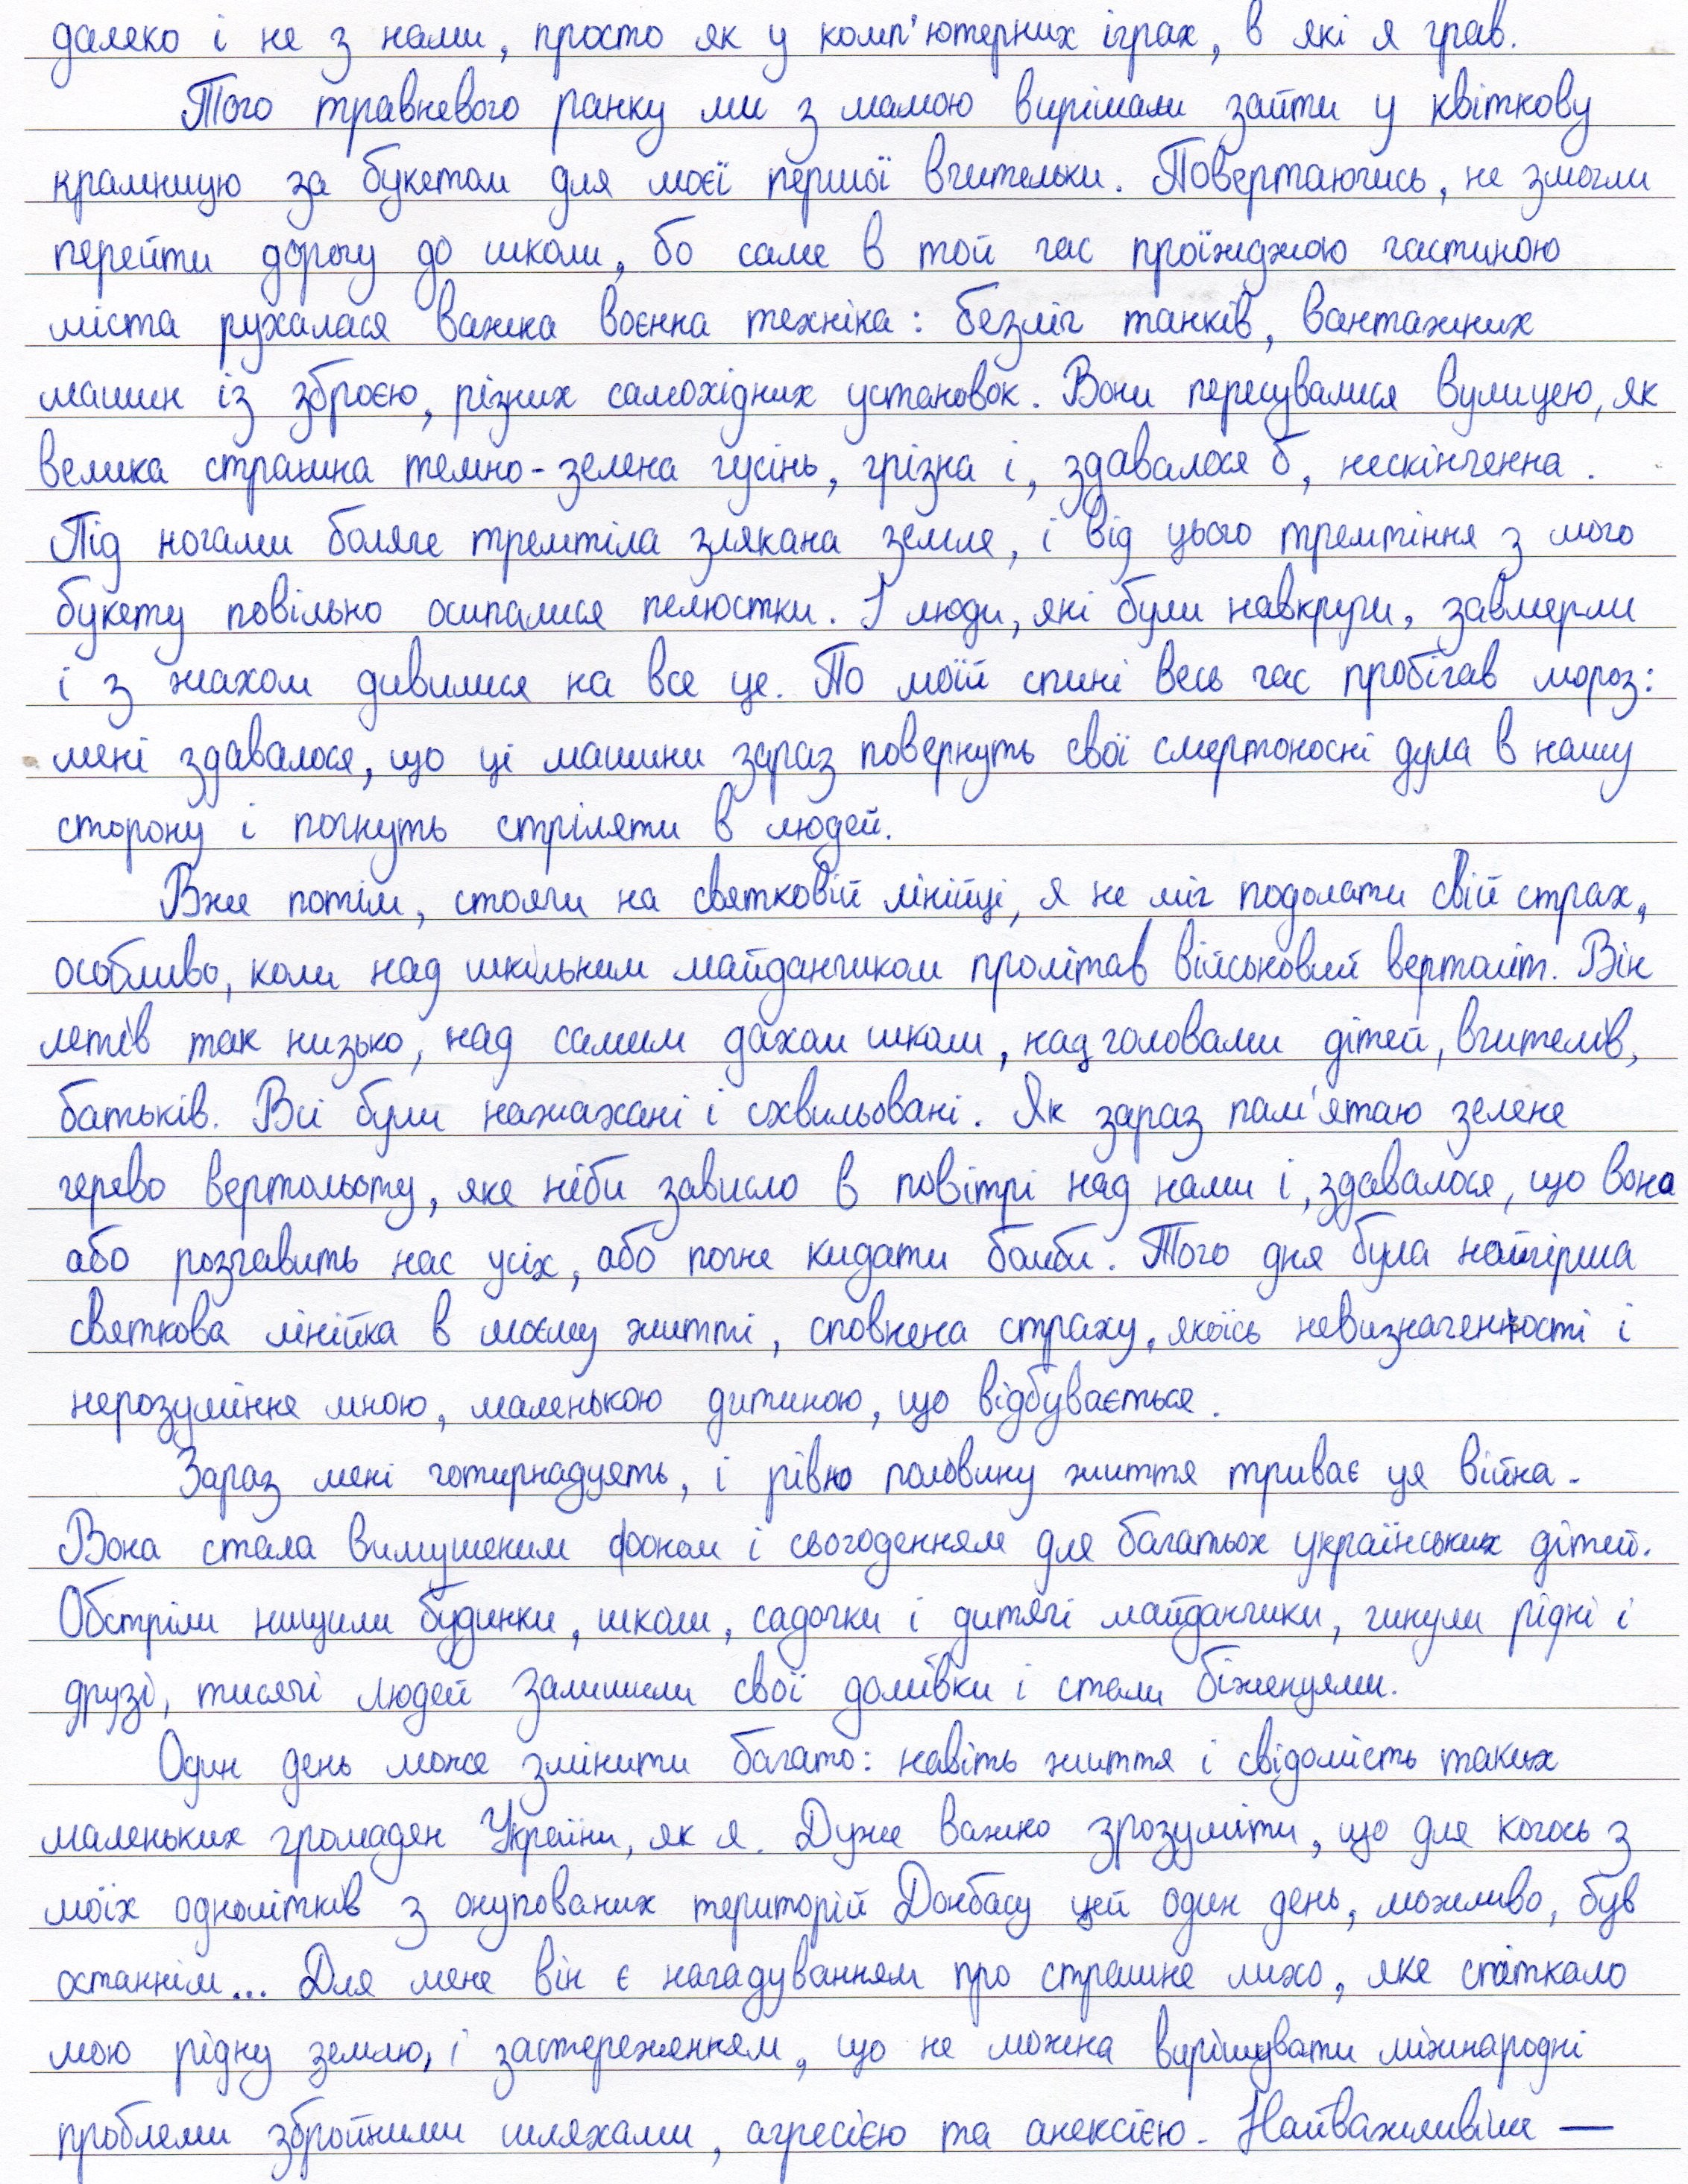 далеко і не з нами, просто як у комп'ютерних іграх, в які я грав.
Того травневого ранку ми з мамою вирішили зайти у квіткову
крамницю за букетом для моєї першої вчительки. Повертаючись, не змогли
перейти дорогу до школи, бо саме в той час проїжджою частиною
міста рухалася важка воєнна техніка: безліч танків, вантажних
машин із зброєю, різних самохідних установок. Вони пересувалися вулицею, як
велика страшна темно-зелена гусінь, грізна і, здавалося б, нескінченна.
Під ногами боляче тремтіла злякана земля, і від цього тремтіння з мого
букету повільно осипалися пелюстки. І люди, які були навкруги, завмерли
і з жахом дивилися на все це. По моїй спині весь час пробігав мороз:
мені здавалося, що ці машини зараз повернуть свої смертоносні дула в нашу
сторону і почнуть стріляти в людей.
Вже потім, стоячи на святковій лінійці, я не міг подолати свій страх,
особливо, коли над шкільним майданчиком пролітав військовий вертоліт. Він
летів так низько, над самим дахом школи, над головами дітей, вчителів,
батьків. Всі були нажахані і схвильовані. Як зараз пам'ятаю зелене
черево вертольоту, яке ніби зависло в повітрі над нами і, здавалося, що вона
або розчавить нас усіх, або почне кидати бомби. Того дня була найгірша
святкова лінійка в моєму житті, сповнена страху, якоїсь невизначенності і
нерозуміння мною, маленькою дитиною, що відбувається.
Зараз мені чотирнадцять, і рівно половину життя триває ця війна.
Вона стала вимушеним фоном і сьогоденням для багатьох українських дітей.
Обстріли нищили будинки, школи, садочки і дитячі майданчики, гинули рідні і
друзі, тисячі людей залишили свої домівки і стали біженцями.
Один день може змінити багато: навіть життя і свідомість таких
маленьких громадян України, як я. Дуже важко зрозуміти, що для когось з
моїх однолітків з окупованих територій Донбасу цей один день, можливо, був
останнім... Для мене він є нагадуванням про страшне лихо, яке спіткало
мою рідну землю, і застереженням, що не можна вирішувати міжнародні
проблеми збройними шляхами, агресією та анексією. Найважливіше —